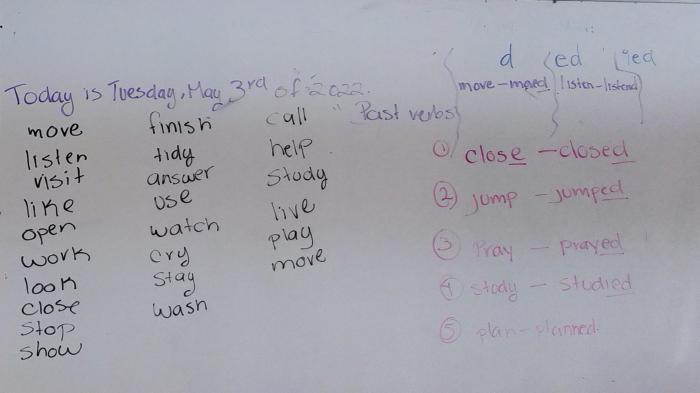 Today is Tuesday, May 3rd of 2022.
move
listen
visit
like
open
work
look
close
stop
show
finish
tidy
answer
use
watch
cry
stay
wash
call
help
study
live
play
move
"Past verbs
d ed ied
move-moved listen-listend
① close - closed
② jump - jumped
③ Pray - prayed
④ study - studied
⑤ plan - planned.